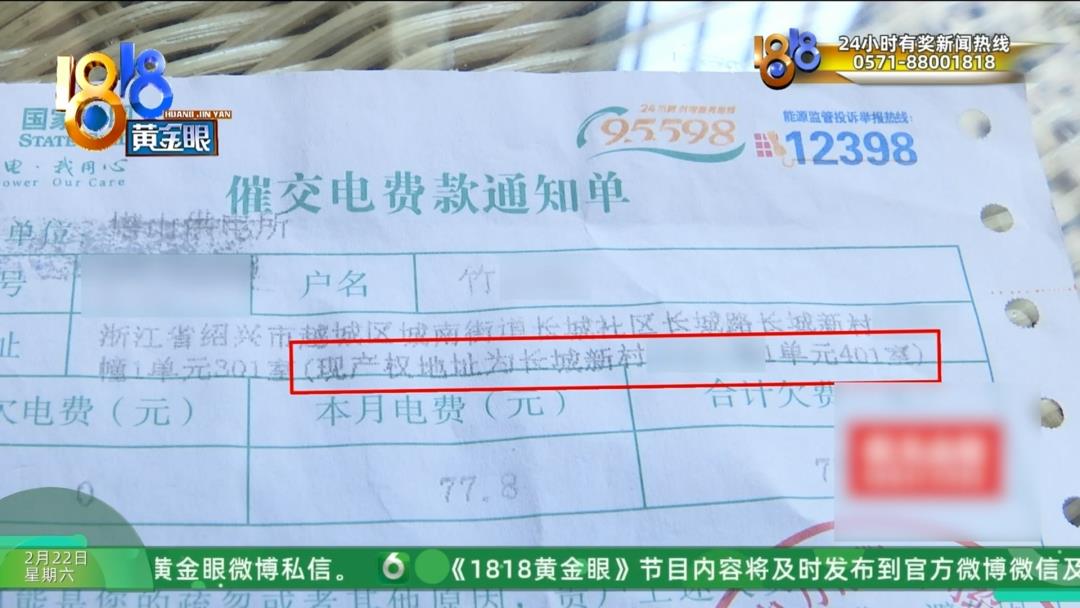 1818
HUANG JIN YAN
黄金眼
1818
24小时有奖新闻热线
0571-88001818
国家
STATE
电·我用心
ower Our Care
95598
能源监管投诉举报热线:
12398
催交电费款通知单
单位: 塔山供电所
号
户名
竹
址
浙江省绍兴市越城区城南街道长城社区长城路长城新村
幢1单元301室(现产权地址为长城新村 1单元401室)
欠电费(元)
本月电费(元)
合计欠费
0
77.8
7
2月22日
星期六
黄金眼微博私信。
6
《1818黄金眼》节目内容将及时发布到官方微博微信及
能是您的疏忽或者其他原因,